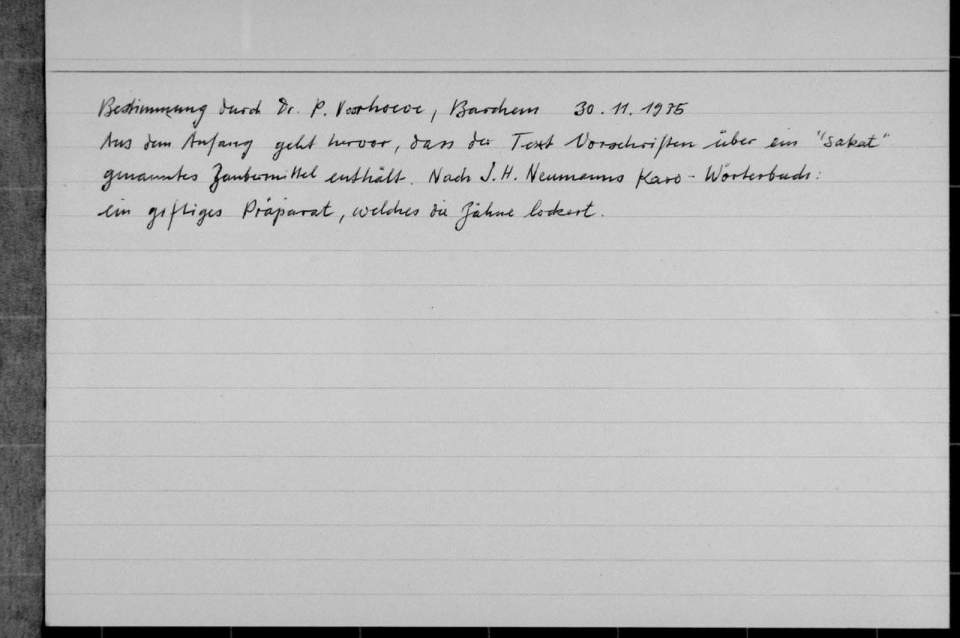 Bestimmung durch Dr. P. Voorhoeve, Barchem 30.11.1975
Aus dem Anfang geht hervor, dass der Text Vorschriften über ein "sakat"
genanntes Zaubermittel enthält. Nach J.H. Neumanns Karo-Wörterbuch:
ein giftiges Präparat, welches die Zähne lockert.